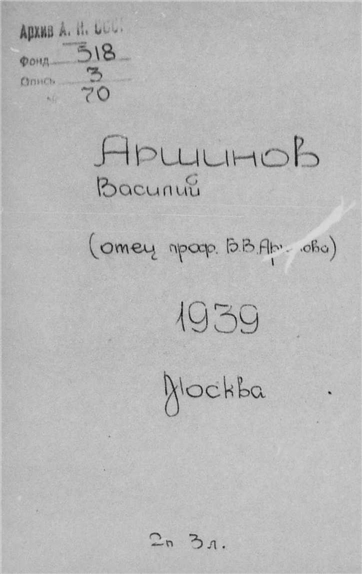 Архив А. Н. СССР
Фонд 518
Опись 3
№ 70
Аршинов
Василий
(отец проф. В.В.Аршинова)
1939
Москва
2п 3л.